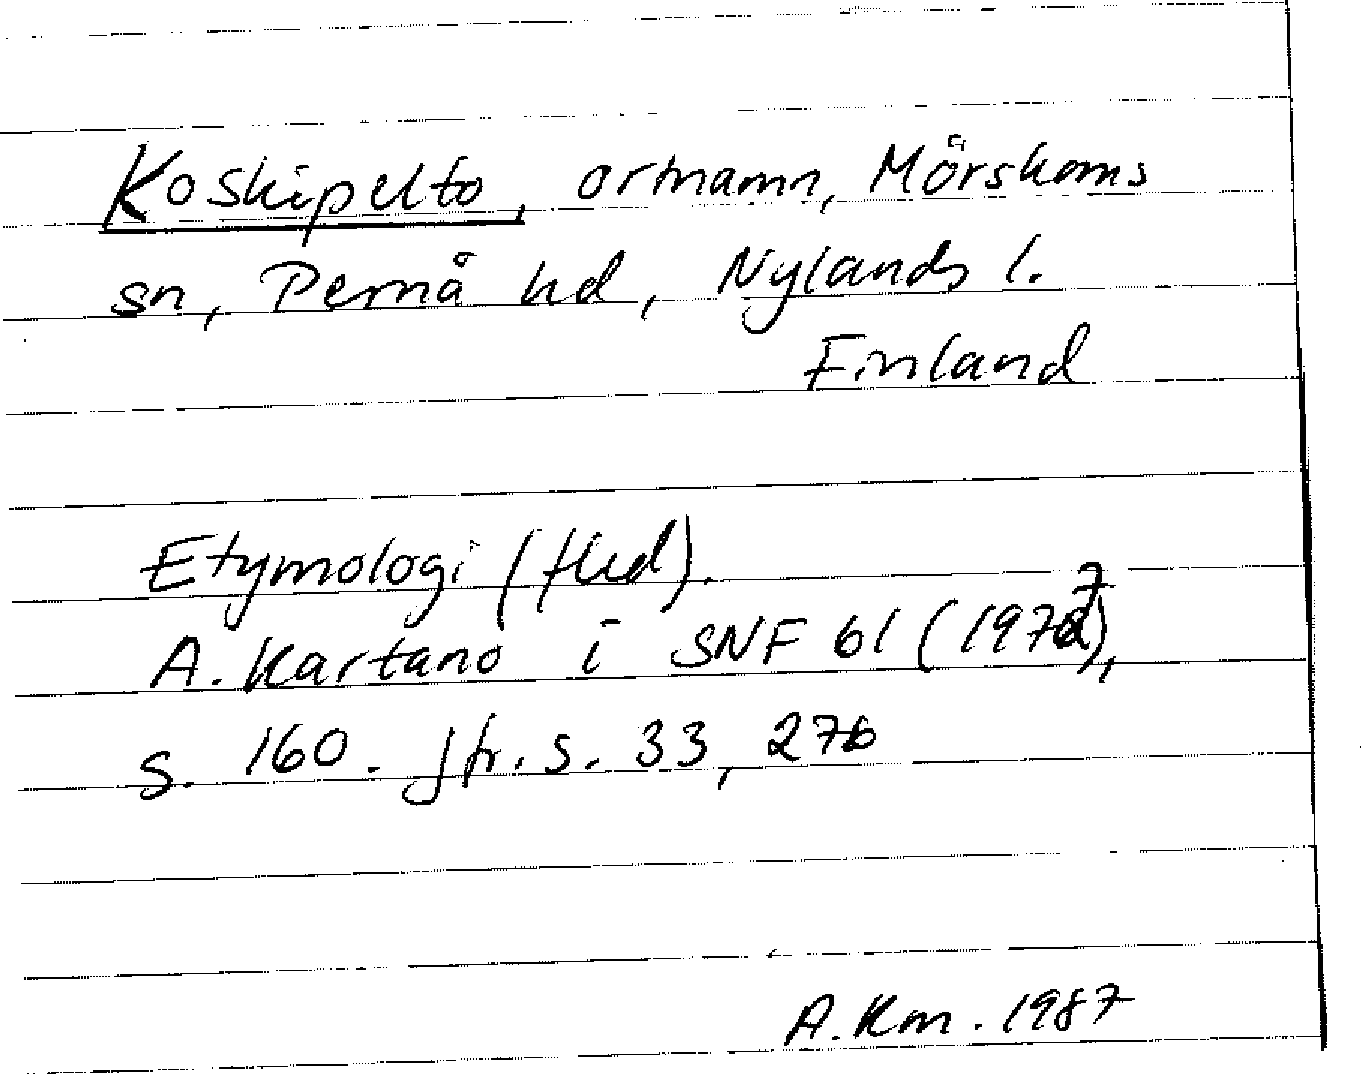 Koskipelto, ortnamn, Mörskoms
sn, Pernå hd, Nylands l.
Finland
Etymologi (fled).
A. Kartano i SNF 61 (1977),
s. 160. Jfr. s. 33, 276
A. Km. 1987